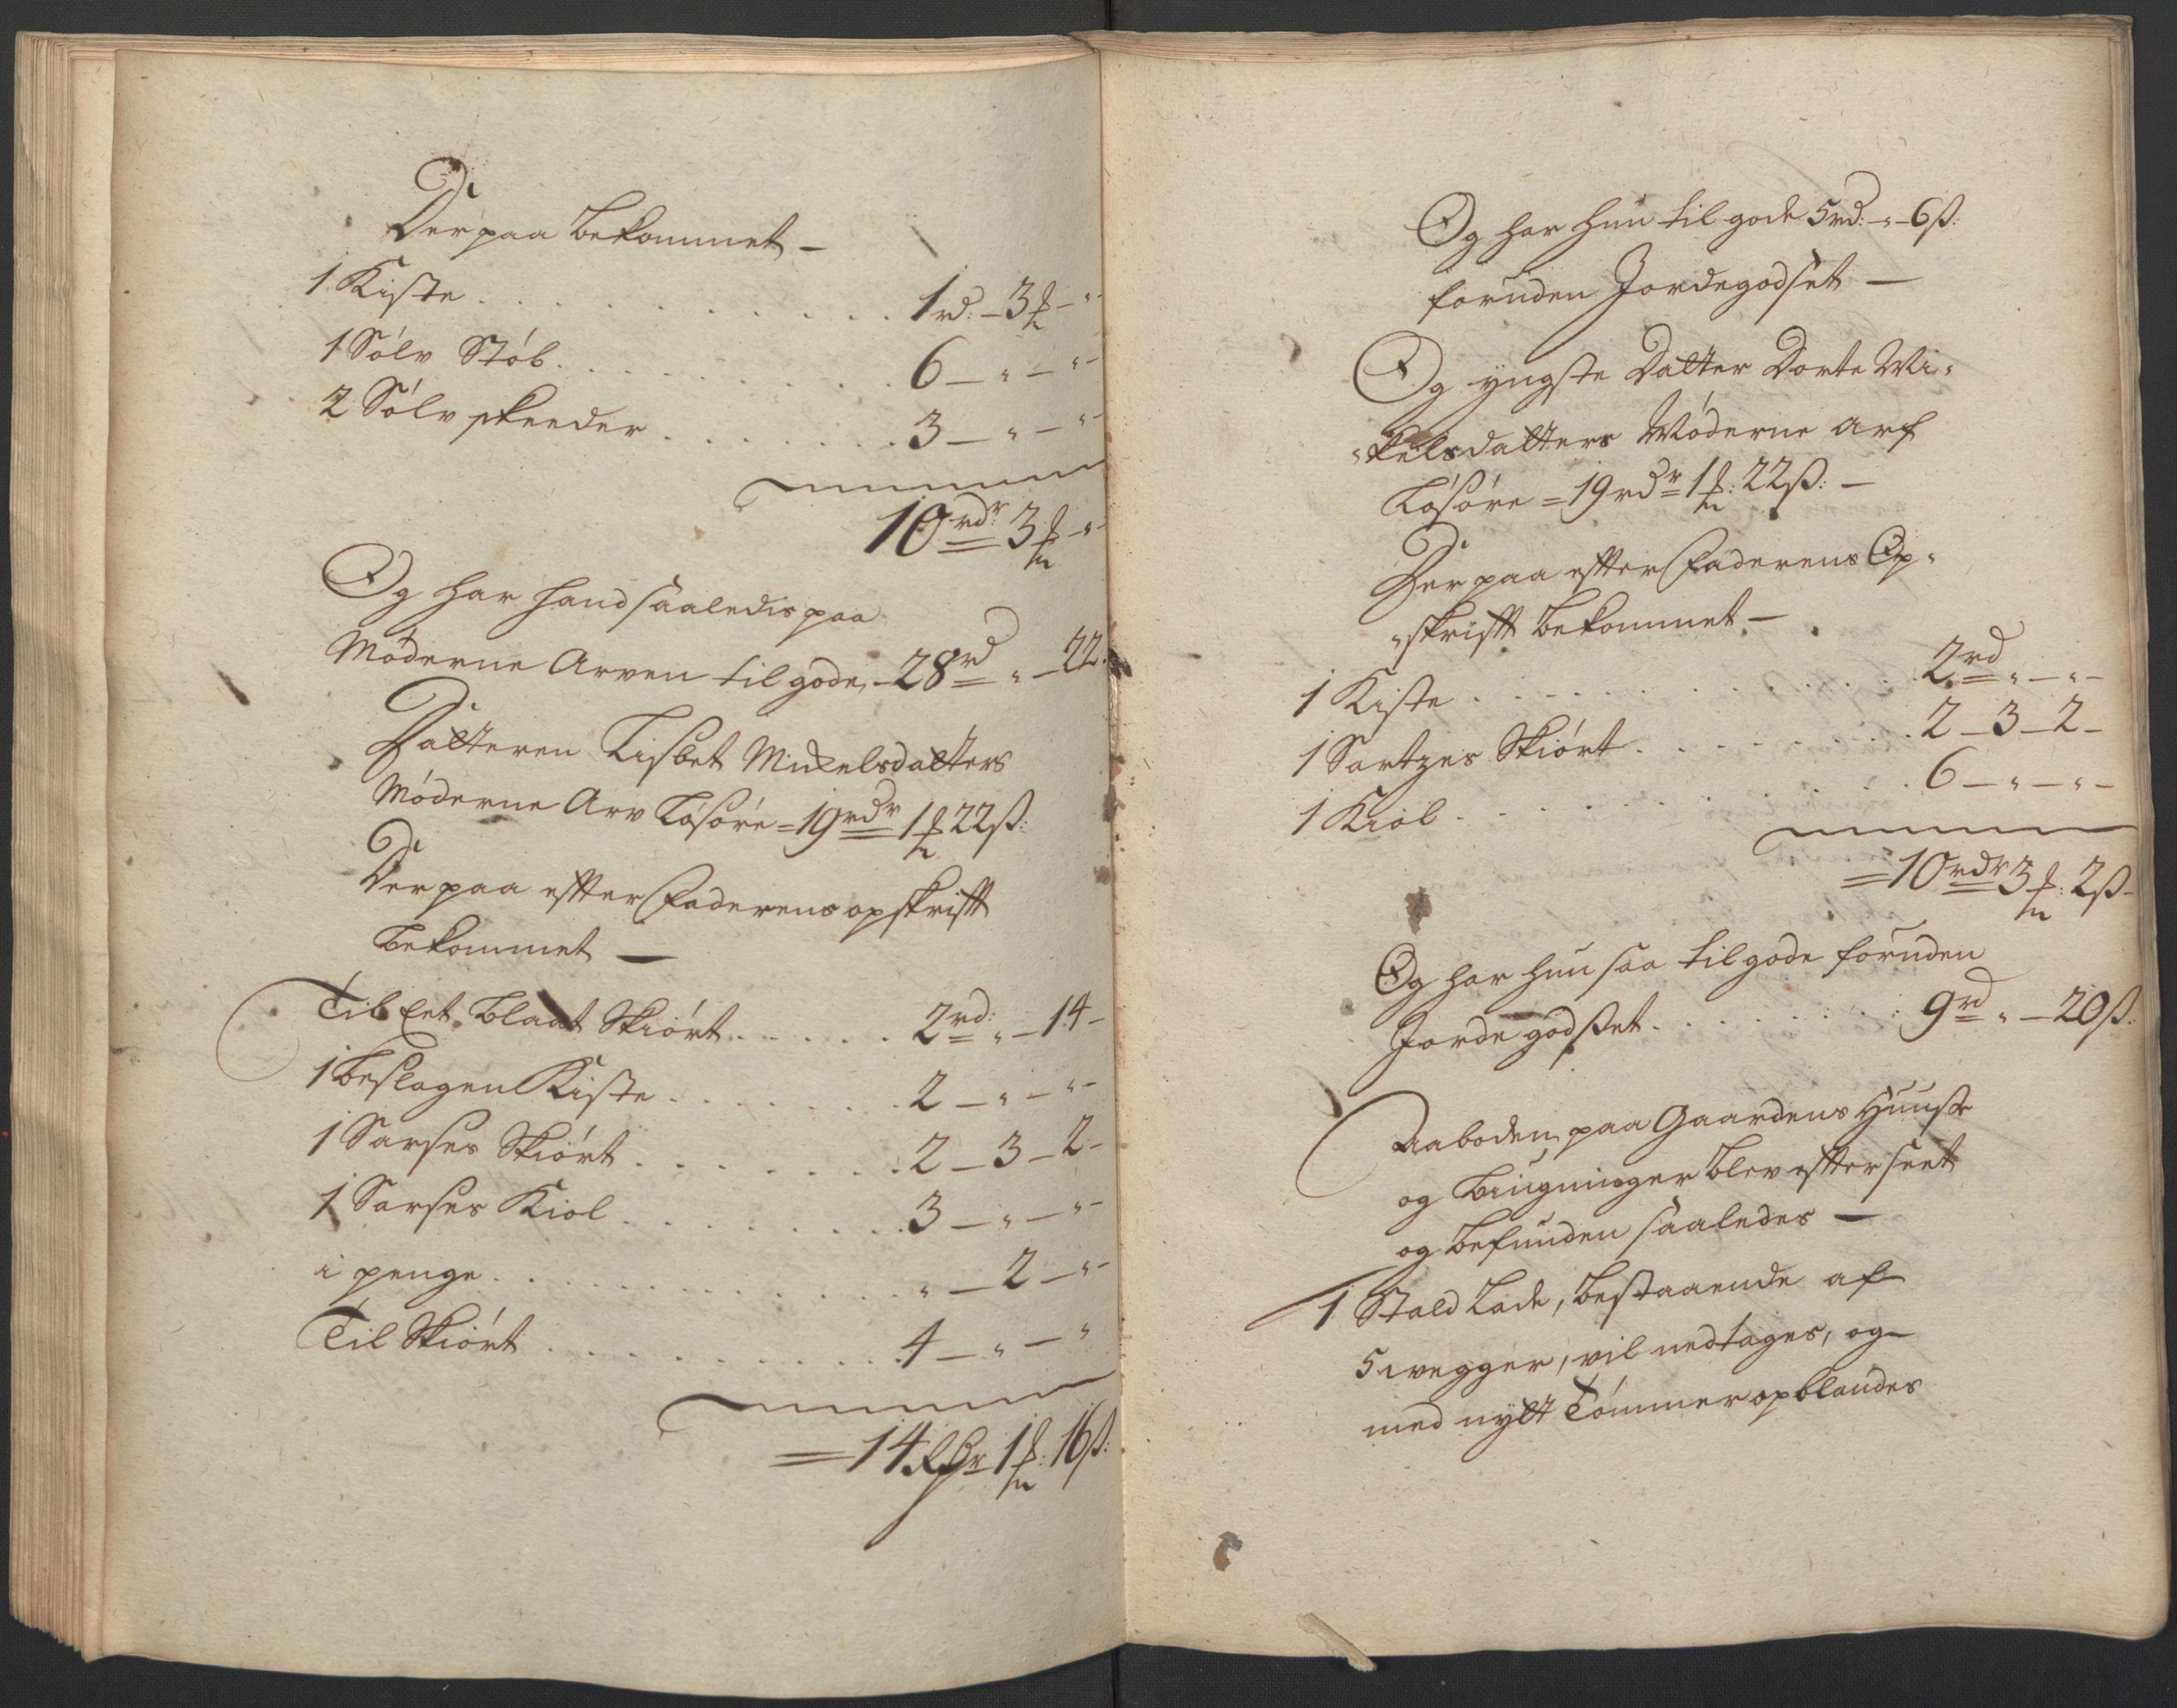 Der paa bekommet –
1 Kiste . . . . . . . . . . 1 rd: – 3 ₰ – "
1 Sølv Støb . . . . . . . . . 6 – " – " –
2 Sølv skeeder . . . . . . . . 3 – " – " –
10 rdr 3 ₰ – "
Og har hand saaledis paa
Møderne Arven til gode, – 28 rd " – 22
Datteren Lisbet Mickelsdatters
Møderne Arv Løsøre = 19 rdr 1 ₰ 22 ß:
Der paa efter Faderens opskrift
bekommet –
Til Eet blaat Skiørt . . . . . 2 rd: " – 14 –
1 beslagen Kiste . . . . . . . 2 – " – " –
1 Sarses Skiørt . . . . . . . 2 – 3 – 2 –
1 Sarses Kiol . . . . . . . . 3 – " – " –
i penge . . . . . . . . . . " – 2 – " –
Til Skiørt . . . . . . . . . 4 – " – "
= 14 Rdr 1 ₰: 16 ß:
Og har hun til gode 5 rd: – " – 6 ß:
foruden Jordegodset –
Og yngste Datter Dorte Mi-
-kelsdatters Møderne arf
Løsøre = 19 rdr 1 ₰: 22 ß: –
Der paa efter Faderens Op-
-skrift bekommet –
1 Kiste . . . . . . . . . . 2 rd " – " –
1 Sartzes Skiørt . . . . . . . 2 – 3 – 2 –
1 Kiol . . . . . . . . . . 6 – " – " –
= 10 rdr 3 ₰: 2 ß –
Og har hun saa til gode foruden
Jorde godset . . . . . . . . 9 rd " – 20 ß:
Aaboden paa Gaardens Huuse
og bûgninger blev efterseet
og befunden saaledes –
1 Stald Lade, bestaaende af
5 vegger, vil nedtages, og
med nytt Tømmer opblandes